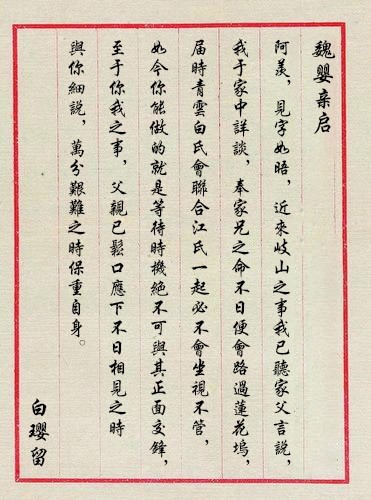 魏嬰亲启
阿羡，見字如晤，近來岐山之事我已聽家父言說，
我于家中詳談，奉家兄之命不日便會路過蓮花塢，
届時青雲白氏會聯合江氏一起必不會坐視不管，
如今你能做的就是等待時機絕不可與其正面交鋒，
至于你我之事，父親已鬆口應下不日相見之時
與你細說，萬分艱難之時保重自身。
白瓔留